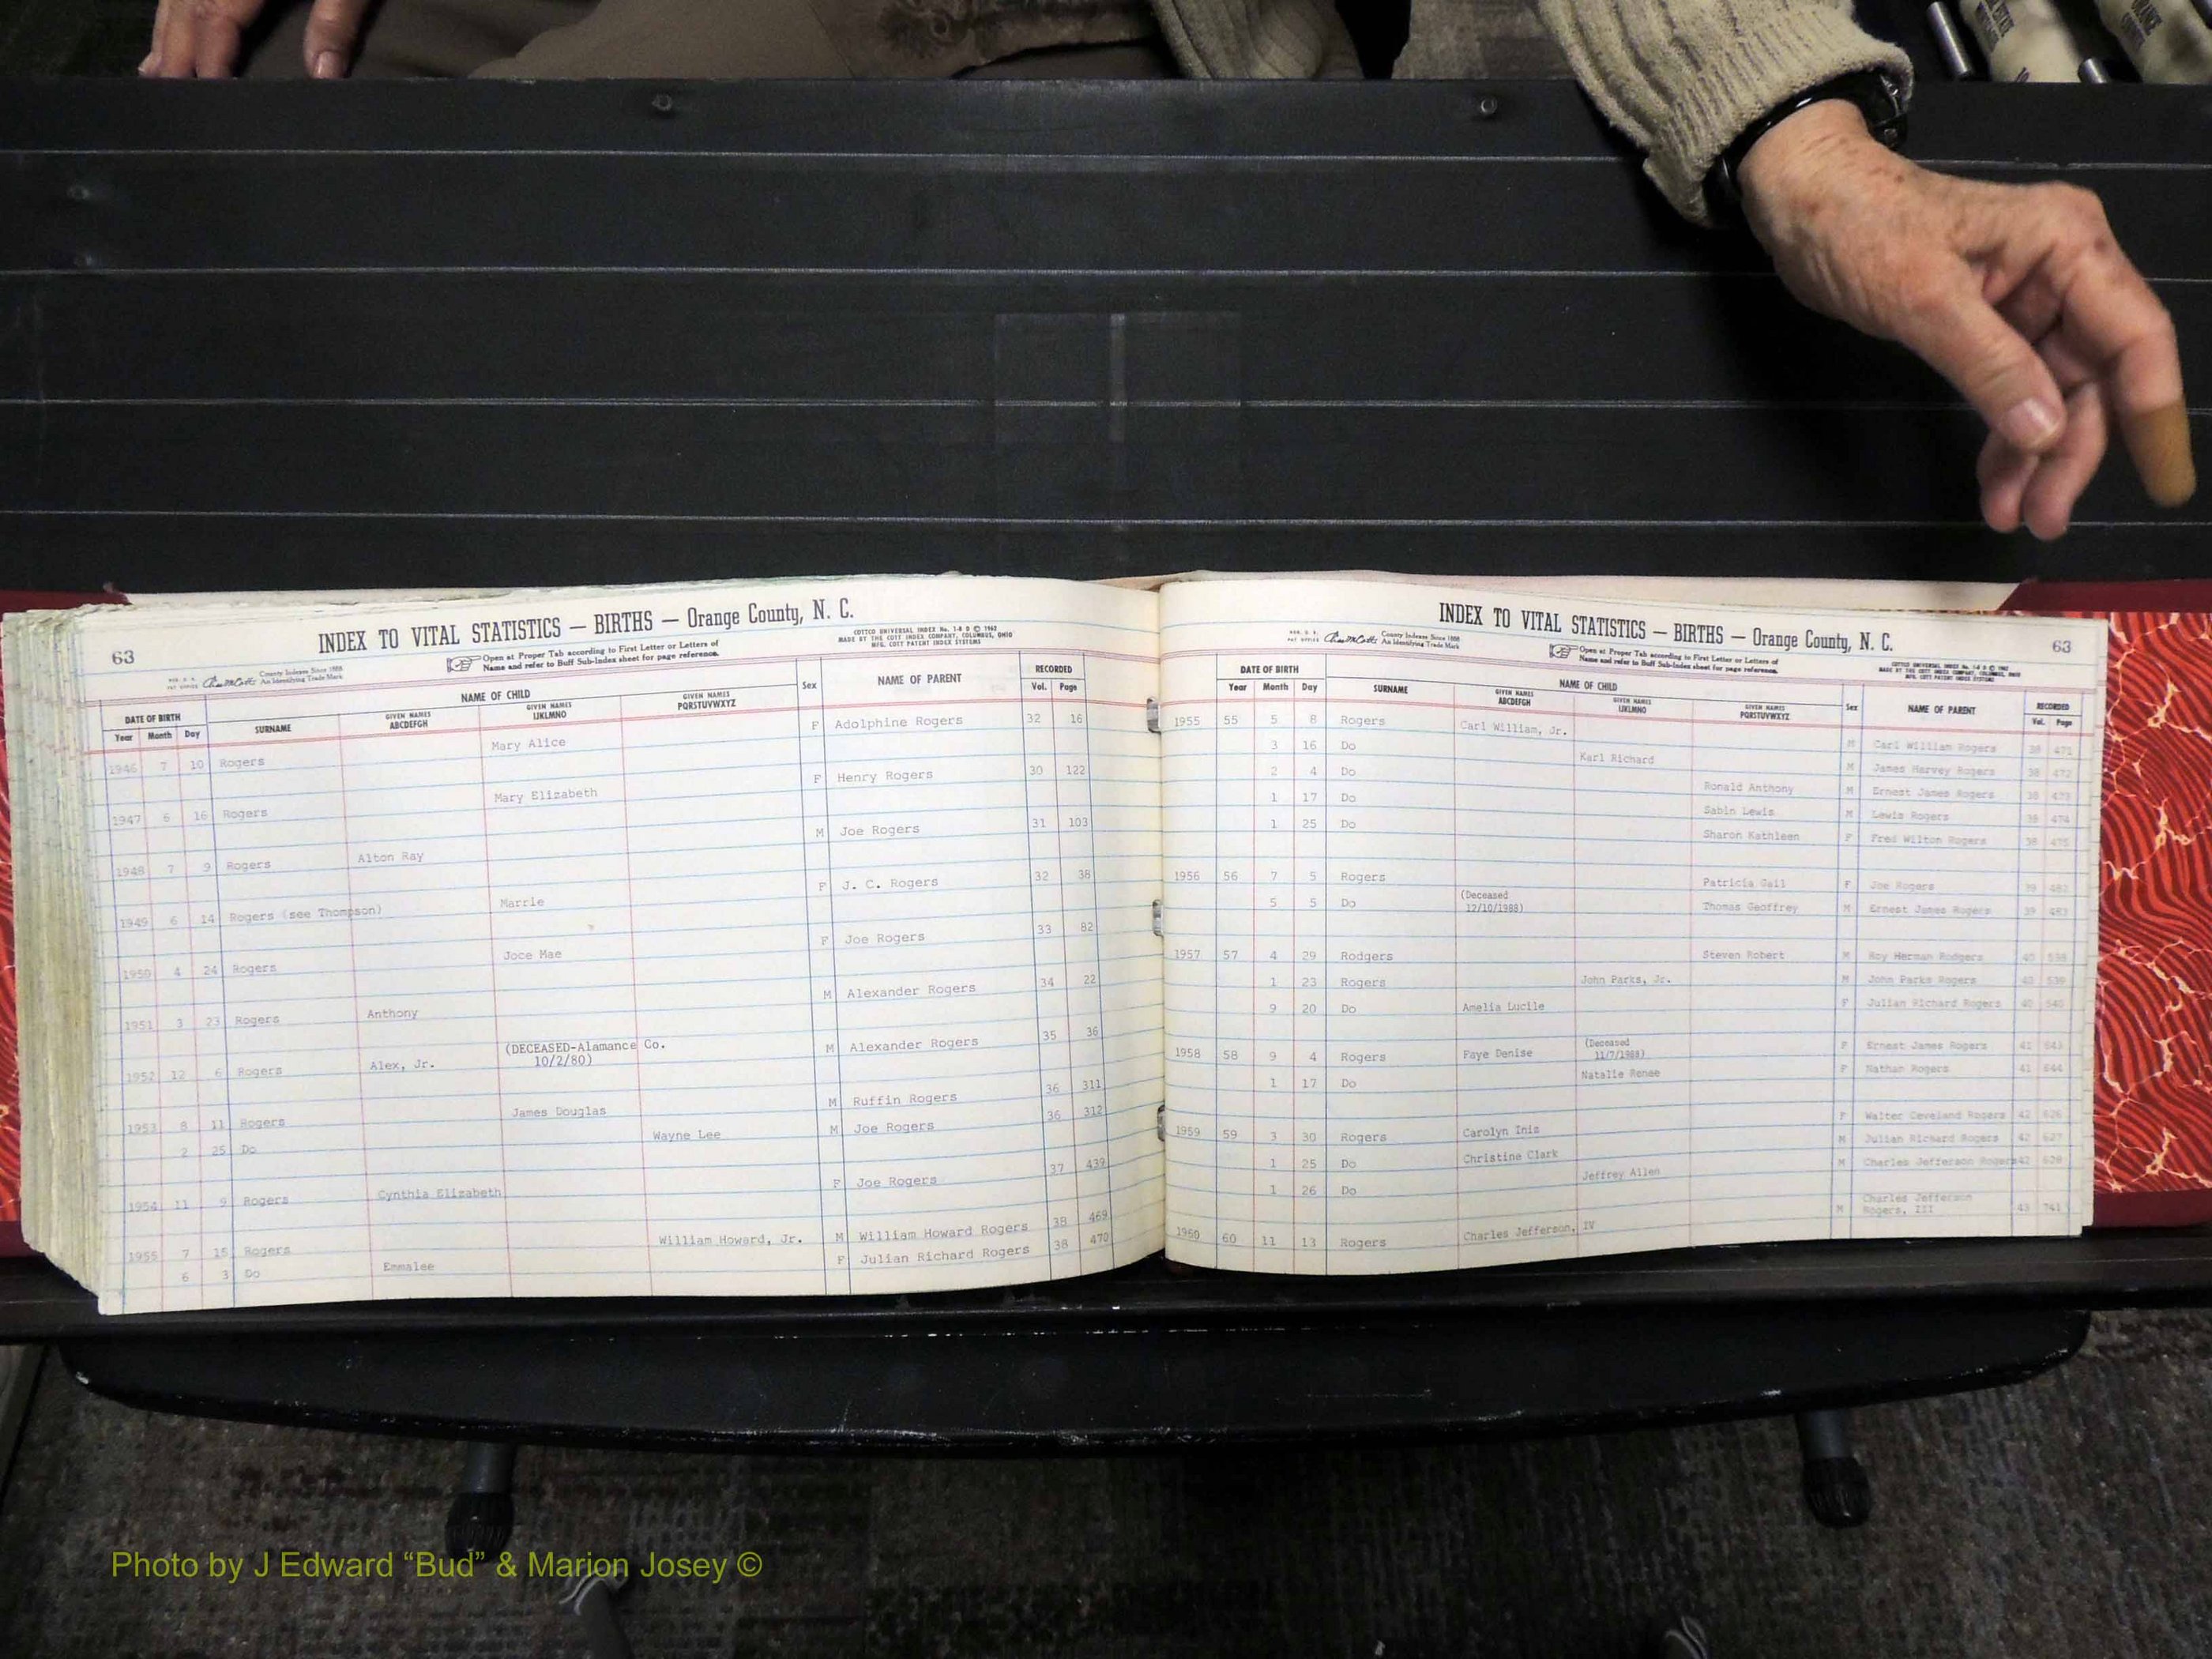 63
INDEX TO VITAL STATISTICS — BIRTHS — Orange County, N. C.
County Indexes Since 1888
An Identifying Trade Mark
Open at Proper Tab according to First Letter or Letters of
Name and refer to Buff Sub-Index sheet for page reference.
COTTCO UNIVERSAL INDEX No. 1-8 D © 1962
MADE BY THE COTT INDEX COMPANY, COLUMBUS, OHIO
MFG. COTT PATENT INDEX SYSTEMS
DATE OF BIRTH NAME OF CHILD Sex NAME OF PARENT RECORDED
Year Month Day SURNAME GIVEN NAMES ABCDEFGH GIVEN NAMES IJKLMNO GIVEN NAMES PQRSTUVWXYZ Vol. Page
1946 7 10 Rogers Mary Alice F Adolphine Rogers 32 16
1947 6 16 Rogers Mary Elizabeth F Henry Rogers 30 122
1948 7 9 Rogers Alton Ray M Joe Rogers 31 103
1949 6 14 Rogers (see Thompson) Marrie F J. C. Rogers 32 38
1950 4 24 Rogers Joce Mae F Joe Rogers 33 82
1951 3 23 Rogers Anthony M Alexander Rogers 34 22
1952 12 6 Rogers Alex, Jr. (DECEASED-Alamance Co. 10/2/80) M Alexander Rogers 35 36
1953 8 11 Rogers James Douglas M Ruffin Rogers 36 311
2 25 Do Wayne Lee M Joe Rogers 36 312
1954 11 9 Rogers Cynthia Elizabeth F Joe Rogers 37 439
1955 7 15 Rogers William Howard, Jr. M William Howard Rogers 38 469
6 3 Do Emmalee F Julian Richard Rogers 38 470
INDEX TO VITAL STATISTICS — BIRTHS — Orange County, N. C.
63
County Indexes Since 1888
An Identifying Trade Mark
Open at Proper Tab according to First Letter or Letters of
Name and refer to Buff Sub-Index sheet for page reference.
DATE OF BIRTH NAME OF CHILD Sex NAME OF PARENT RECORDED
Year Month Day SURNAME GIVEN NAMES ABCDEFGH GIVEN NAMES IJKLMNO GIVEN NAMES PQRSTUVWXYZ Vol. Page
1955 55 5 8 Rogers Carl William, Jr. M Carl William Rogers 38 471
3 16 Do Karl Richard M James Harvey Rogers 38 472
2 4 Do Ronald Anthony M Ernest James Rogers 38 473
1 17 Do Sabin Lewis M Lewis Rogers 38 474
1 25 Do Sharon Kathleen F Fred Wilton Rogers 38 475
1956 56 7 5 Rogers Patricia Gail F Joe Rogers 39 482
5 5 Do (Deceased 12/10/1988) Thomas Geoffrey M Ernest James Rogers 39 483
1957 57 4 29 Rodgers Steven Robert M Roy Herman Rodgers 40 538
1 23 Rogers John Parks, Jr. M John Parks Rogers 40 539
9 20 Do Amelia Lucile F Julian Richard Rogers 40 540
1958 58 9 4 Rogers Faye Denise (Deceased 11/7/1988) F Ernest James Rogers 41 643
1 17 Do Natalie Renee F Nathan Rogers 41 644
1959 59 3 30 Rogers Carolyn Inis F Walter Ceveland Rogers 42 626
1 25 Do Christine Clark M Julian Richard Rogers 42 627
1 26 Do Jeffrey Allen M Charles Jefferson Rogers 42 628
1960 60 11 13 Rogers Charles Jefferson, IV M Charles Jefferson Rogers, III 43 741
Photo by J Edward “Bud” & Marion Josey ©